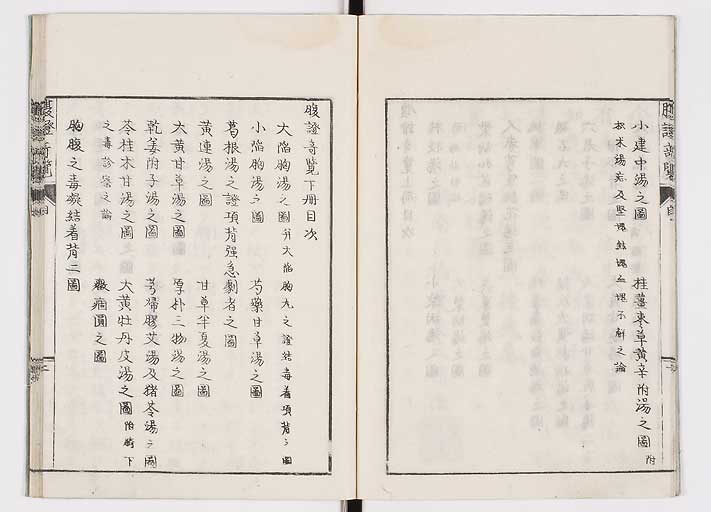 小建中湯之圖 桂薑棗草黃辛附湯之圖 附
枳朮湯症及堅塊結塊血塊不解之論
腹證奇覽下冊目次
大陷胸湯之圖 并大陷胸丸之證結毒着項背之圖
小陷胸湯之圖 芍藥甘草湯之圖
葛根湯之證項背强急劇者之圖
黃連湯之圖 甘草半夏湯之圖
大黃甘草湯之圖 厚朴三物湯之圖
乾姜附子湯之圖 芎歸膠艾湯及猪苓湯之圖
苓桂朮甘湯之圖 大黃牡丹皮湯之圖 附
之毒診察之論
癥痼圖之圖
胸腹之毒凝結着背二圖